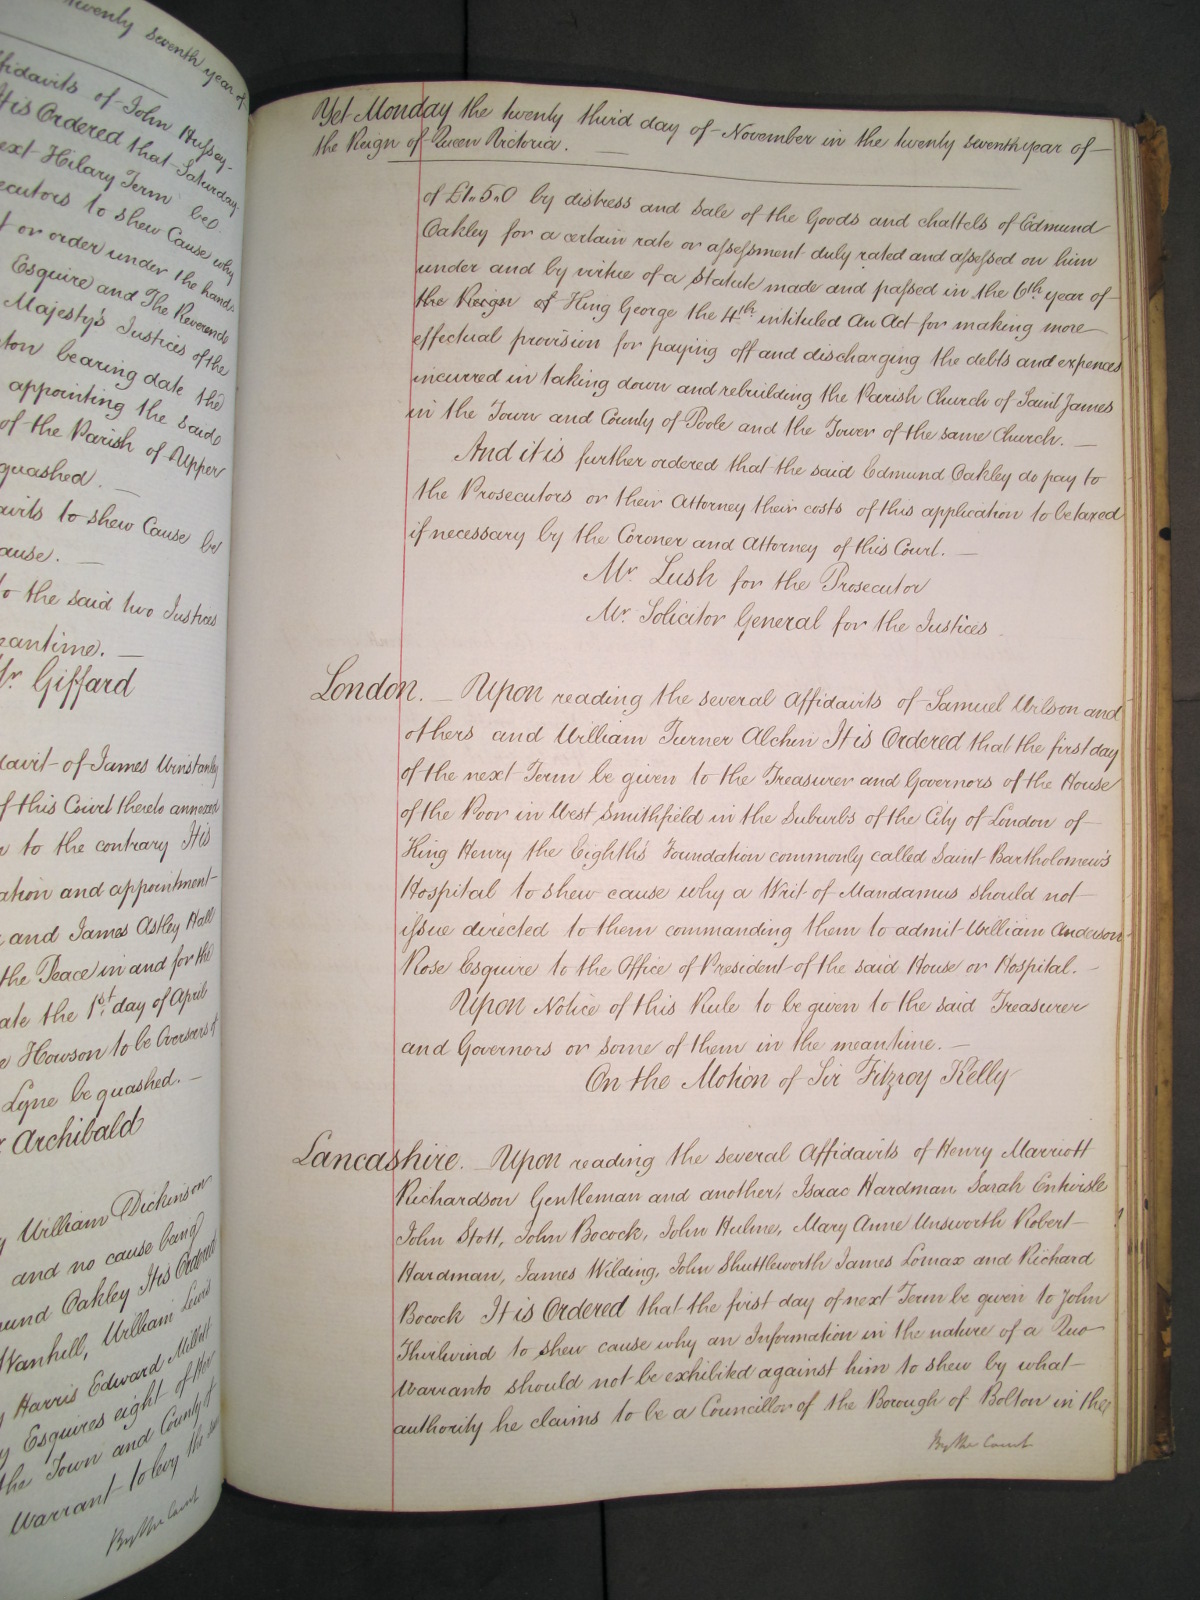 twenty seventh year of
ffidavits of John Hussey
It is Ordered that Saturday
next Hilary Term be
ecutors to shew Cause why
t or order under the hands
Esquire and The Reverend
Majesty's Justices of the
ton bearing date the
appointing the said
of the Parish of Upper
quashed.
avits to shew Cause be
ause.
to the said two Justices
eantime.
Mr. Giffard
davit of James Winstanley
f this Court thereto annexed
n to the contrary It is
ation and appointment
and James Astley Hall
the Peace in and for the
ate the 1st. day of April
e Howson to be Overseers of
Lyne be quashed.
r Archibald
y William Dickinson
and no cause being
mund Oakley It is Ordered
Wanhill, William Lewis
y Harris Edward Millett
y Esquires eight of Her
the Town and County of
Warrant to levy the
By the Court
Yet Monday the twenty third day of November in the twenty seventh year of
the Reign of Queen Victoria.
of £1.. 5.. 0 by distress and sale of the Goods and chattels of Edmund
Oakley for a certain rate or assessment duly rated and assessed on him
under and by virtue of a statute made and passed in the 6th year of
the Reign of King George the 4th. intituled An Act for making more
effectual provision for paying off and discharging the debts and expences
incurred in taking down and rebuilding the Parish Church of Saint James
in the Town and County of Poole and the Tower of the same Church.
And it is further ordered that the said Edmund Oakley do pay to
the Prosecutors or their Attorney their costs of this application to be taxed
if necessary by the Coroner and Attorney of this Court.
Mr. Lush for the Prosecutor
Mr. Solicitor General for the Justices
London. Upon reading the several Affidavits of Samuel Wilson and
others and William Turner Alchin It is Ordered that the first day
of the next Term be given to the Treasurer and Governors of the House
of the Poor in West Smithfield in the Suburbs of the City of London of
King Henry the Eighth's Foundation commonly called Saint Bartholomew's
Hospital to shew cause why a Writ of Mandamus should not
issue directed to them commanding them to admit William Anderson
Rose Esquire to the Office of President of the said House or Hospital.
Upon Notice of this Rule to be given to the said Treasurer
and Governors or some of them in the meantime.
On the Motion of Sir Fitzroy Kelly
Lancashire. Upon reading the several Affidavits of Henry Marriott
Richardson Gentleman and another, Isaac Hardman, Sarah Entwisle
John Stott, John Bocock, John Hulme, Mary Anne Unsworth Robert
Hardman, James Wilding, John Shuttleworth James Lomax and Richard
Bocock It is Ordered that the first day of next Term be given to John
Thirlwind to shew cause why an Information in the nature of a Quo
Warranto should not be exhibited against him to shew by what
authority he claims to be a Councillor of the Borough of Bolton in the
By the Court